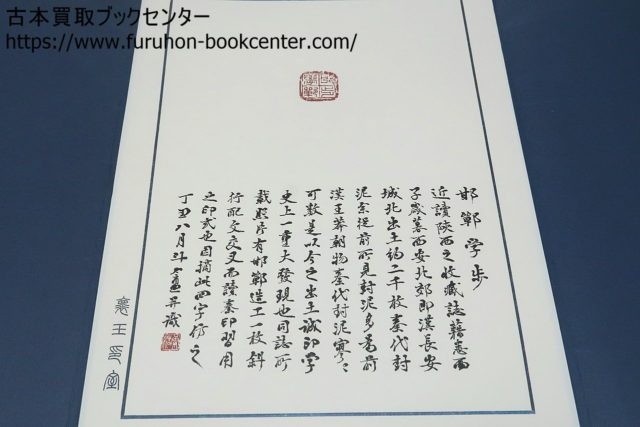 古本買取ブックセンター
https://www.furuhon-bookcenter.com/
邯鄲学步
近讀陝西之收藏誌籍悉丙
子歲暮西安北郊即漢長安
城北出土約二千枚秦代封
泥余從前所見封泥多為前
漢王莽朝物秦代封泥寥々
可数是以今之出土誠即学
史上一重大發現也同誌所
載照片有邯鄲造工一枚斜
行配文交叉而讀秦印習用
之印式也因摘此四字仿之
丁丑八月 并識
襄王印室